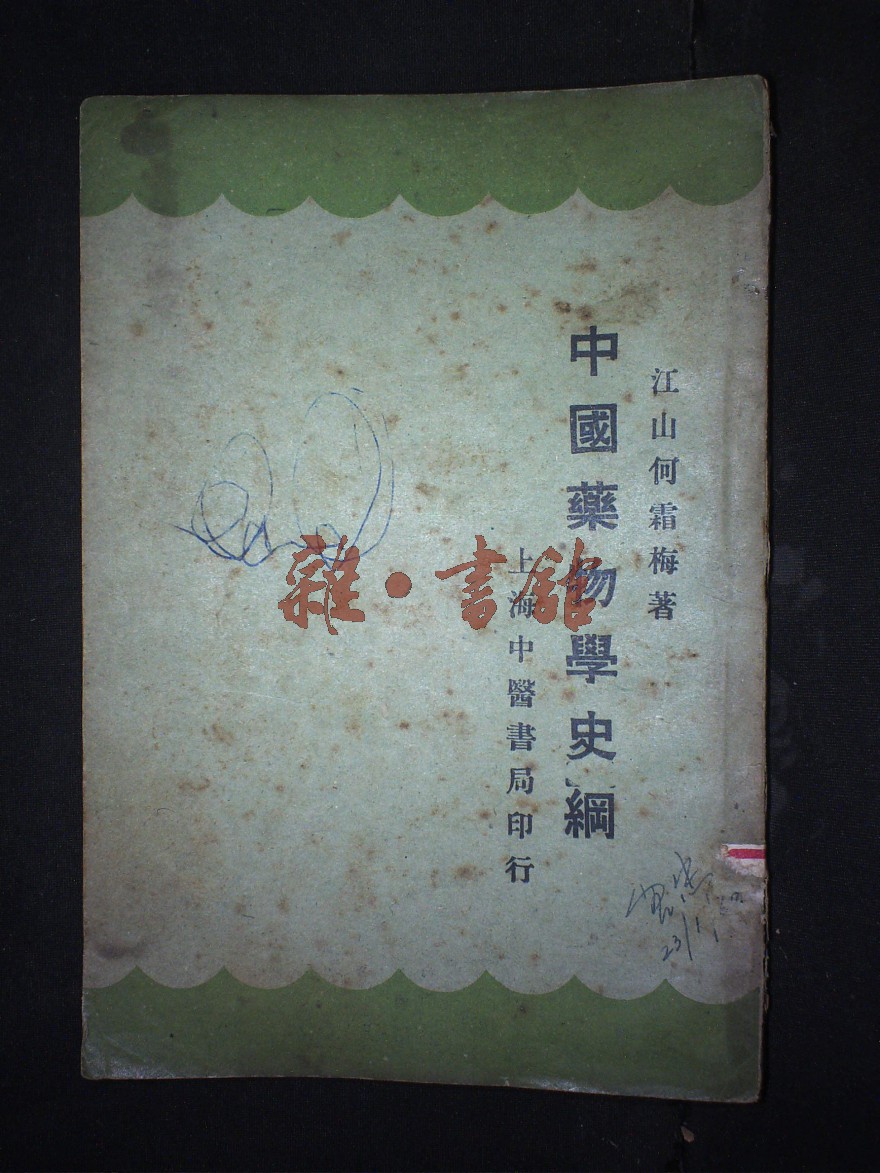 江山何霜梅著
中國藥物學史綱
上海中醫書局印行
雜·書館
23/1